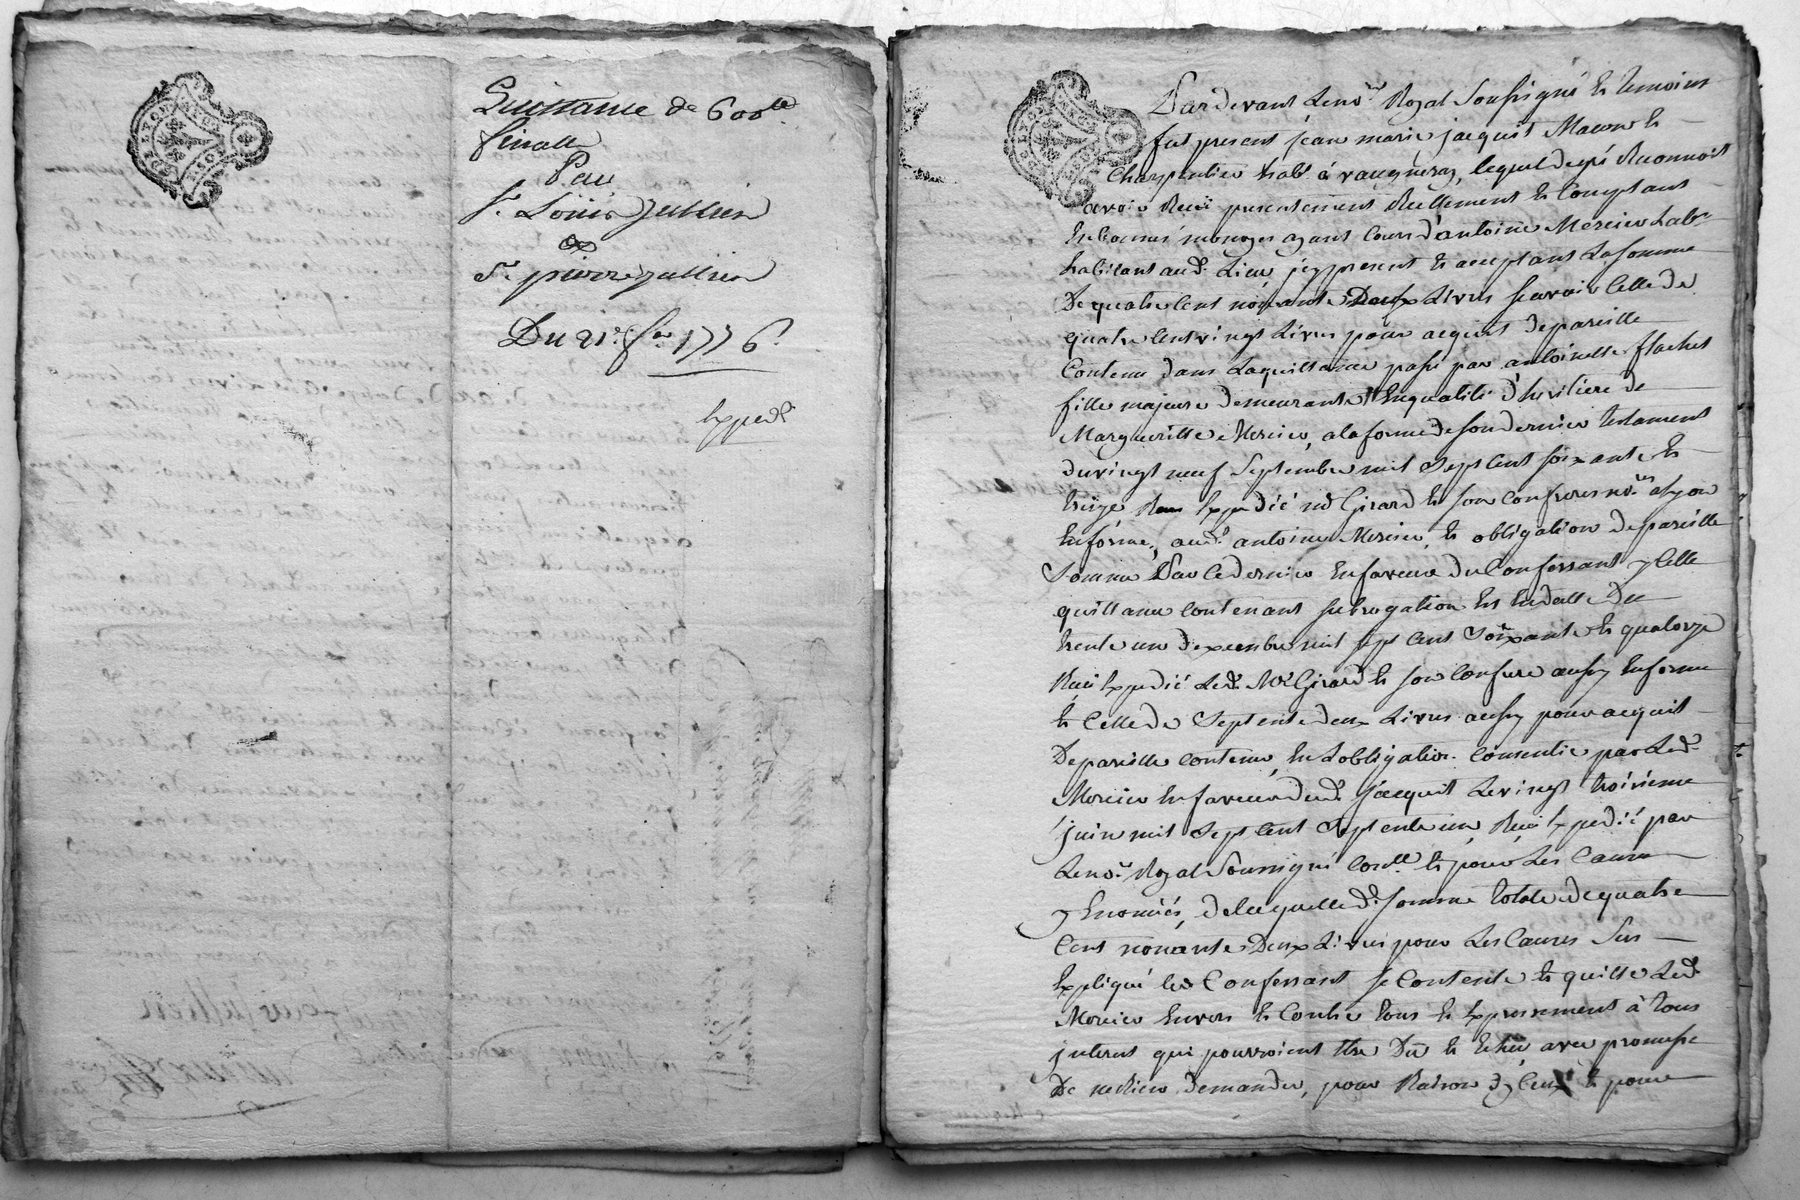 Quittance de 600ᵗᵗ
finalle
Par
Sʳ. Loüis jullien
a
Sʳ. pierre jullien
Du 21ᵉ. fᵉʳ 1776.
Expedᵉ
Pardevant Le noʳᵉ Royal Soussigné Et temoins
fut present jean marie jacquit Macon Et
Charpentier habᵗ à vaugneray, lequel de gré Reconnoit
avoir Reçu presentement Reellement Et Comptant
En bonnes monoyes ayant Cours d'antoine Mercier Labʳ
habitant audᵗ. Lieu jcy present Et acceptant La somme
De quatre Cent nonante Deux Livres scavoir Celle de
quatre Cent vingt Livres pour acquit de pareille
Contenue dans La quittance passé par antoinette flachat
fille majeure demeurante En qualité d'heritiere de
Margueritte Mercier, a la forme de son dernier testament
du vingt neuf Septembre mil Sept Cent soixante Et
treize Reçu Expedié Mᵉ Girard Et son Confrere noʳᵉˢ a Lyon
En forme, audᵗ. antoine Mercier, Et obligation de pareille
Somme Par Ce dernier En faveur du Confessant, jcelle
quittance Contenant subrogation Est En datte Du
trente un dexcembre mil sept Cent Soixante Et quatorze
Reçu Expedié Ledᵗ. Mᵉ Girard Et son Confrere aussy En forme
Et Celle de Septente deux Livres aussy pour acquit
De pareille Contenue En L'obligation Consentie par Ledᵗ.
Mercier En faveur dudᵗ. jacquit Le vingt troisieme
juin mil Sept Cent Septente un, Reçu Expedié par
Le noʳᵉ. Royal Soussigné Et pour Les Causes
y Enoncées, de laquelle dᵉ. somme totale de quatre
Cent nonante Deux Livres pour Les Causes Sus
Expliqué led Confessant se Contente Et quitte Ledᵗ.
Mercier Envers Et Contre tous Et Expressement à tous
jnterest qui pourroient Etre Dû Et Echu avec promesse
De ne Rien demander, pour Raison d'jceux Et pour